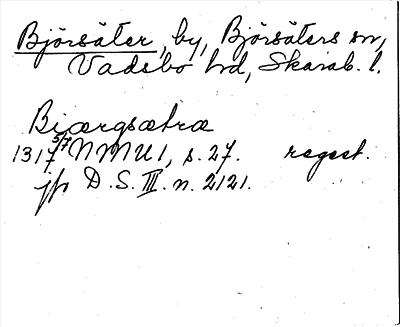 Björsäter, by, Björsäters sn,
Vadsbo hd, Skarab. l.
Biærgsætræ
1317 5/7 NMU 1, s. 27. regest.
jfr D.S. III. n. 2121.